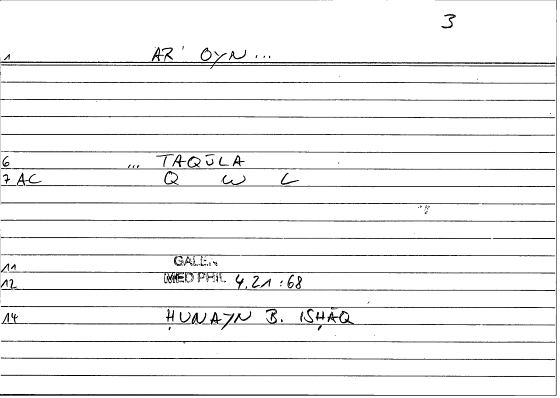 3
1 AR' OYN...
6 ... TAQŪLA
7 AC Q W L
11 GALEN
12 MED PHIL 4.21:68
14 ḤUNAYN B. ISḤĀQ